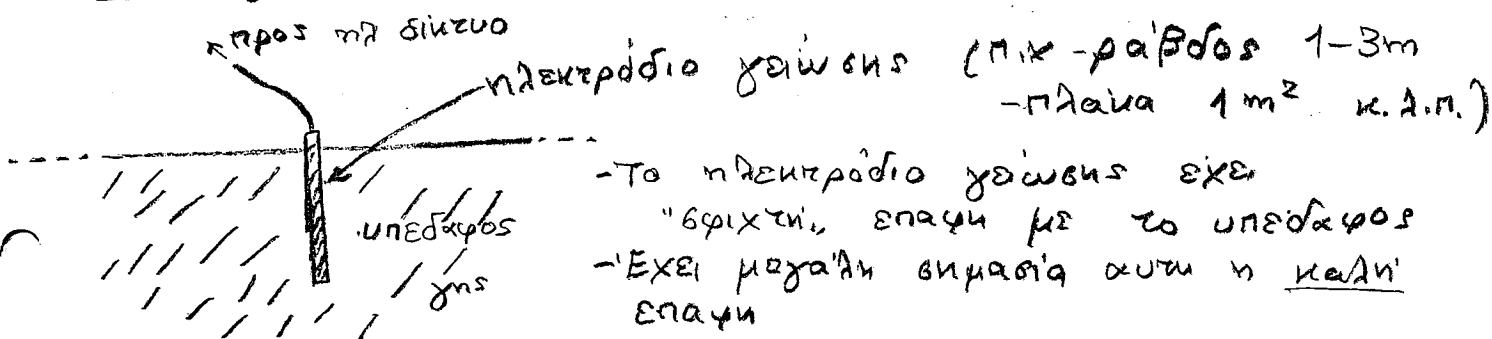 προς ηλ δίκτυο
ηλεκτρόδιο γείωσης (π.χ -ράβδος 1-3m
-πλάκα 1 m² κ.λ.π.)
-Το ηλεκτρόδιο γείωσης έχει
"σφιχτή" επαφη με το υπέδαφος
-Έχει μεγάλη σημασία αυτη η καλή
επαφη
υπέδαφος
γης